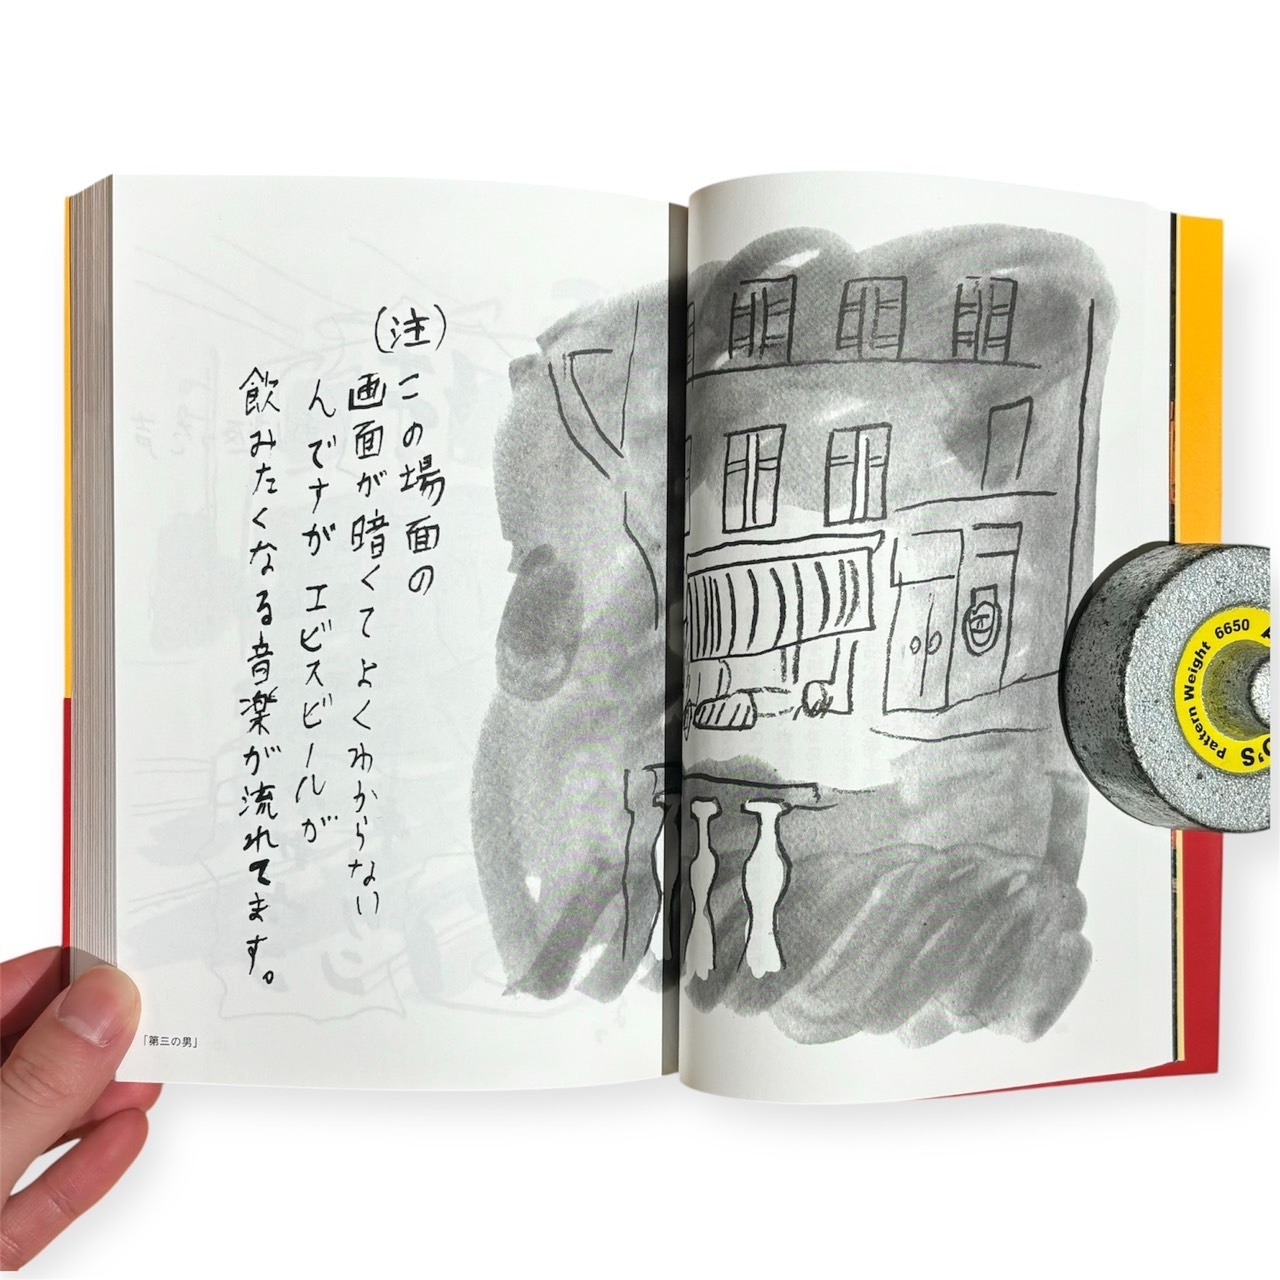 (注)
この場面の
画面が暗くてよくわからない
んですがエビスビールが
飲みたくなる音楽が流れてます。
「第三の男」
Pattern Weight 6650